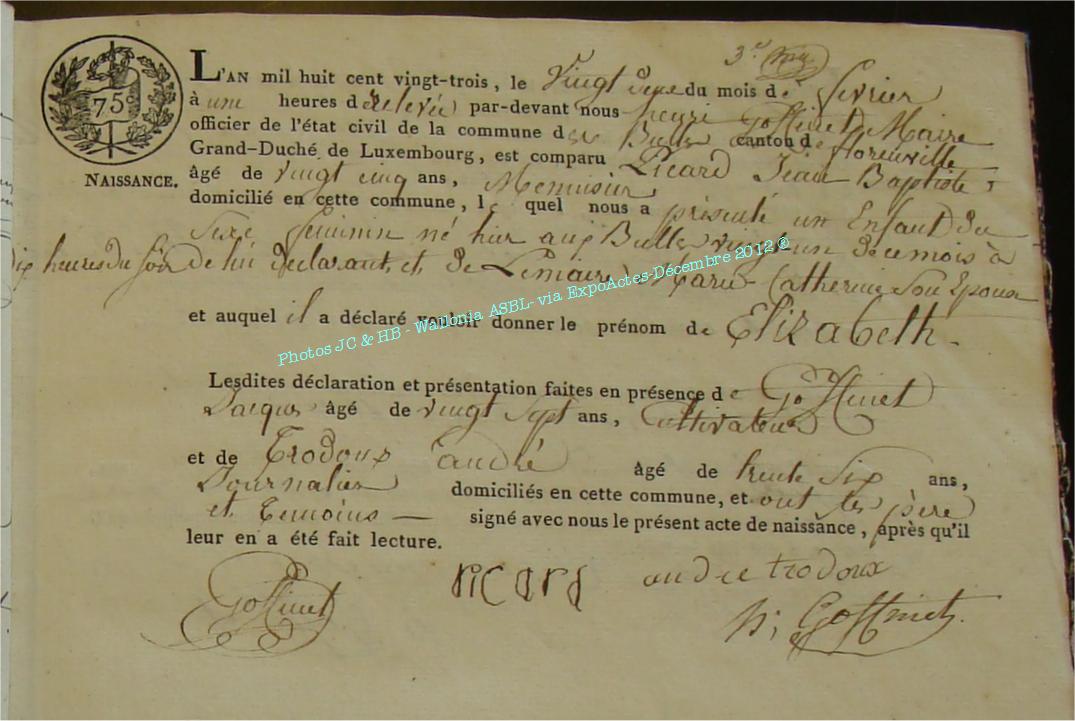 3.e
75c
NAISSANCE.
L'AN mil huit cent vingt-trois, le Vingt deux du mois de fevrier
à une heures de relevée par-devant nous henri Goffinet Maire
officier de l'état civil de la commune des Bulles canton de florenville
Grand-Duché de Luxembourg, est comparu Picard Jean Baptiste
âgé de vingt cinq ans, Menuisier
domicilié en cette commune, le quel nous a présenté un Enfant du
Sexe feminin né hier aux Bulles vingt un de ce mois à
dix heures du soir de lui declarant et de Lemaire Marie Catherine son Epouse
et auquel il a déclaré vouloir donner le prénom de Elizabeth.
Lesdites déclaration et présentation faites en présence de Goffinet
Jacques âgé de vingt sept ans, Cultivateur
et de Trodoux andré âgé de trente six ans,
Journalier domiciliés en cette commune, et ont les père
et temoins signé avec nous le présent acte de naissance, après qu'il
leur en a été fait lecture.
Goffinet picard andre trodoux
h; Goffinet.
Photos JC & HB - Wallonia ASBL- via ExpoActes-Décembre 2012 ®